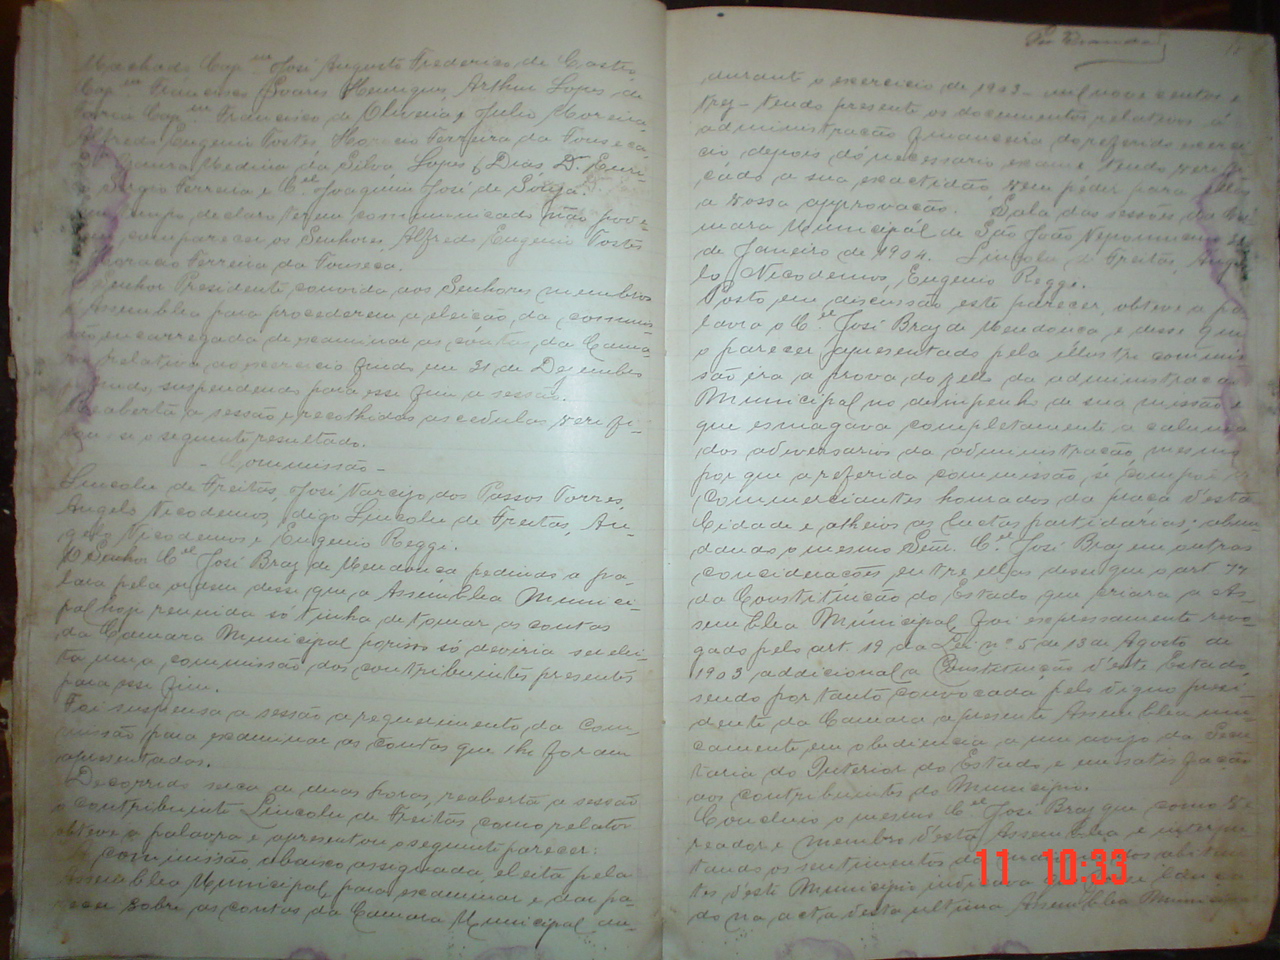 Machado Cap.m José Augusto Frederico de Castro,
Cap.m Francisco Soares Henriques Arthur Lopes de
Faria Cap.m Francisco de Oliveira, Julio Moreira,
Alfredo Eugenio Fortes, Horacio Ferreira da Fonseca,
Moura Medina da Silva, Lopes Dias, Dr.
Sergio Ferreira e C.el Joaquim José de Souza.
tempo declaro terem communicado não pode-
rem comparecer os Senhores Alfredo Eugenio Fortes
Horacio Ferreira da Fonseca.
Senhor Presidente convida aos Senhores membros
Assembléa para procederem a eleição da commis-
são encarregada de examinar as contas da Cama-
ra relativa ao exercicio findo em 31 de Dezembro
suspendendo para esse fim a sessão.
Reaberta a sessão e recolhidas as cedulas verifi-
cou-se o seguinte resultado.
- Commissão -
Lincoln de Freitas, José Narcizo dos Passos Torres,
Angelo Nicodemos, digo Lincoln de Freitas, An-
gelo Nicodemos e Eugenio Reggi.
O Senhor C.el José Braz de Mendonça pedindo a pa-
lavra pela ordem disse que a Assembléa Munici-
pal hoje reunida só tinha de tomar as contas
da Camara Municipal por isso só deveria ser elei-
ta uma commissão dos contribuintes presentes
para esse fim.
Foi suspensa a sessão a requerimento da Com-
missão para examinar as contas que lhe foram
apresentadas.
Decorrido cerca de duas horas, reaberta a sessão
o contribuinte Lincoln de Freitas como relator
obteve a palavra e apresentou o seguinte parecer:
A commissão abaixo assignada, eleita pela
Assembléa Municipal para examinar e dar pa-
recer sobre as contas da Camara Municipal du-
durante o exercicio de 1903 - mil nove centos e
trez - tendo presente os documentos relativos á
administração financeira do referido exerci-
cio, depois do necessario exame tendo verifi-
cado a sua exactidão vem pedir para elles
a vossa approvação. Sala das sessões da Ca-
mara Municipal de São João Nepomuceno
de Janeiro de 1904. Lincoln de Freitas, Ange-
lo Nicodemos, Eugenio Reggi.
Posto em discussão este parecer, obteve a pa-
lavra o C.el José Braz de Mendonça e disse que
o parecer apresentado pela illustre commis-
são era a prova do zelo da administração
Municipal no desempenho de sua missão e
que esmagava completamente a calumnia
dos adversarios da administração, mesmo
por que a referida commissão se compoi de
Commerciantes honrados da praça d'esta
Cidade e alheios as luctas partidárias; abun-
dando o mesmo Snr. C.el José Braz em outras
considerações entre ellas disse que o art 77
da Constituição do Estado que criara a As-
sembléa Municipal, foi expressamente revo-
gado pelo art. 19 da Lei nº 5 de 13 de Agosto de
1903 addicional a Constituição d'este Estado,
sendo portanto convocada pelo digno presi-
dente da Camara a presente Assembléa uni-
camente em obediencia a um aviso da Secre-
taria do Interior do Estado e em satisfação
aos contribuintes do Municipio.
Concluio o mesmo C.el José Braz que como Ve-
reador e membro d'esta Assembléa e interpre-
tando os sentimentos dos habitan-
tes d'este Municipio indicava que
do na acta d'esta ultima Assembléa Municipal
11 10:33